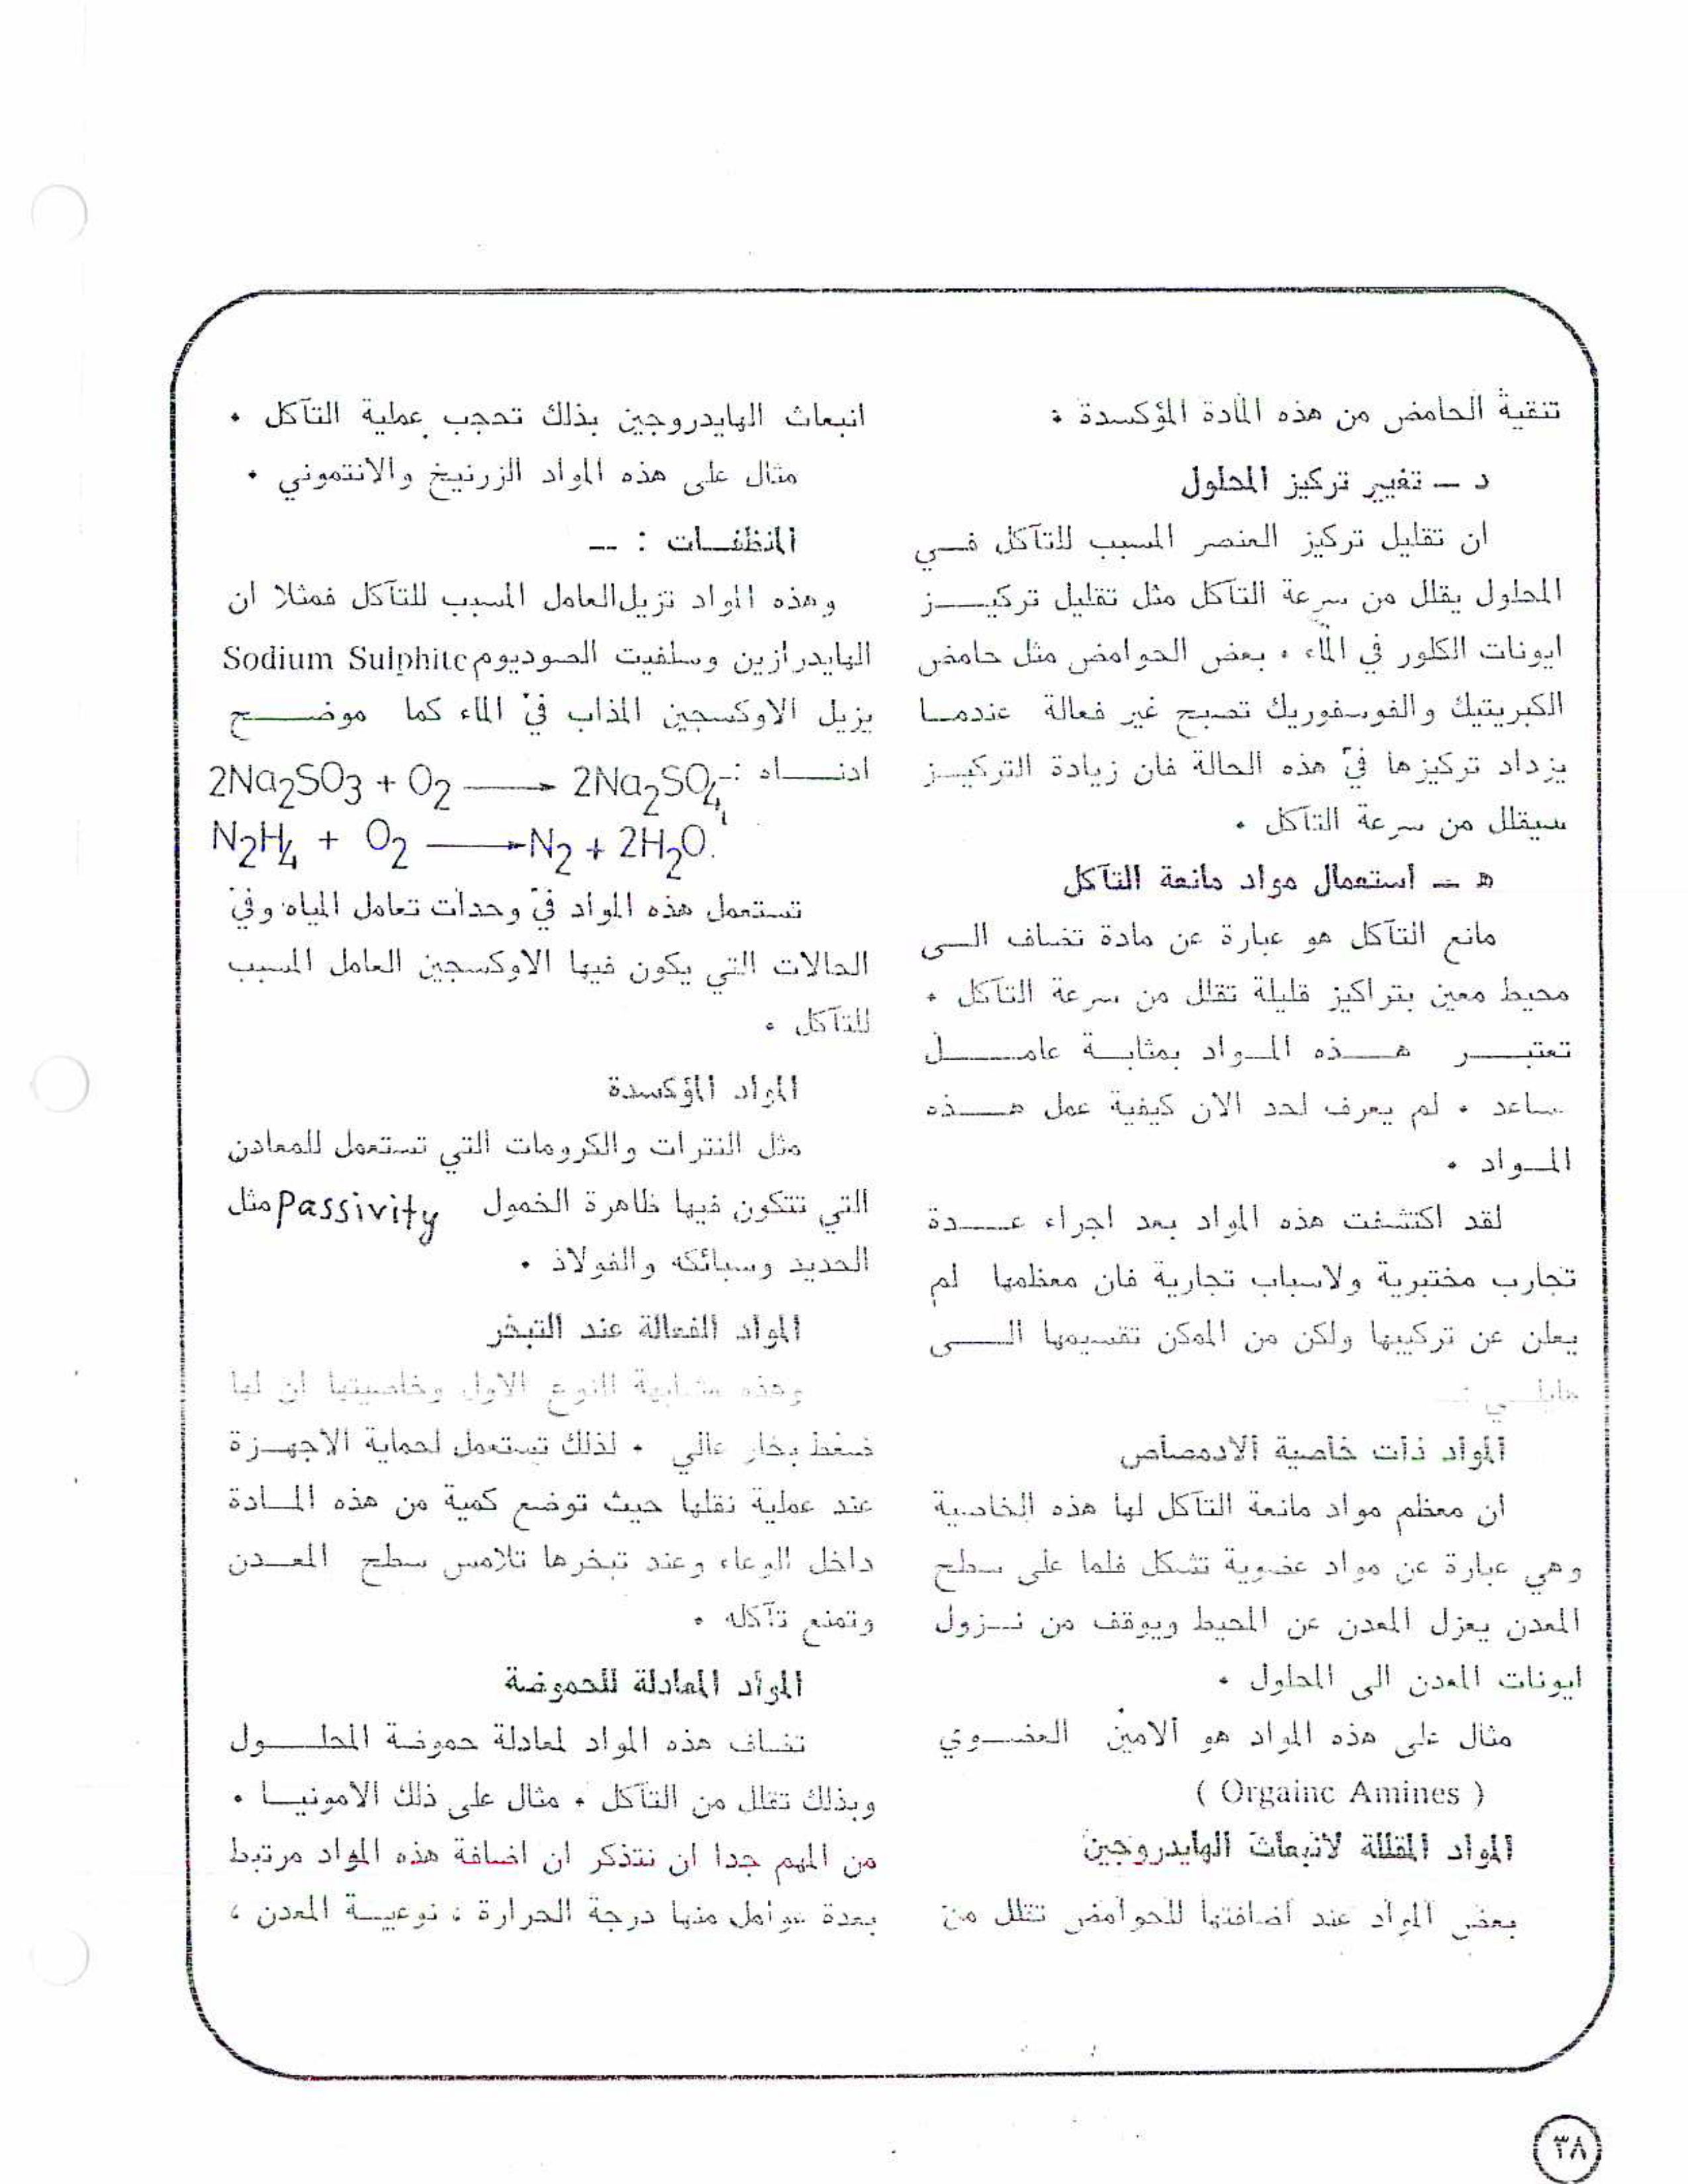 تنقية الحامض من هذه المادة المؤكسدة ٠
د ــ تغيير تركيز المحلول
ان تقليل تركيز العنصر المسبب للتآكل فــي
المحلول يقلل من سرعة التآكل مثل تقليل تركيـــز
ايونات الكلور في الماء ٠ بعض الحوامض مثل حامض
الكبريتيك والفوسفوريك تصبح غير فعالة عندمــا
يزداد تركيزها في هذه الحالة فان زيادة التركيــز
سيقلل من سرعة التآكل ٠
هـ ــ استعمال مواد مانعة التآكل
مانع التآكل هو عبارة عن مادة تضاف الــى
محيط معين بتراكيز قليلة تقلل من سرعة التآكل ٠
تعتبــــر هــــذه المــواد بمثابــة عامــــل
ساعد ٠ لم يعرف لحد الان كيفية عمل هـــذه
المــواد ٠
لقد اكتشفت هذه المواد بعد اجراء عـــدة
تجارب مختبرية ولاسباب تجارية فان معظمها لم
يعلن عن تركيبها ولكن من الممكن تقسيمها الـــى
مايلــي :ــ
المواد ذات خاصية الادمصاص
ان معظم مواد مانعة التآكل لها هذه الخاصية
وهي عبارة عن مواد عضوية تشكل فلما على سطح
المعدن يعزل المعدن عن المحيط ويوقف من نــزول
ايونات المعدن الى المحلول ٠
مثال على هذه المواد هو الامين العضــوي
( Orgainc Amines )
المواد المقللة لانبعاث الهايدروجين
بعض المواد عند اضافتها للحوامض تتلل من
انبعاث الهايدروجين بذلك تحجب عملية التآكل ٠
مثال على هذه المواد الزرنيخ والانتموني ٠
المنظفــات : ــ
وهذه المواد تزيل العامل المسبب للتآكل فمثلا ان
الهايدرازين وسلفيت الصوديوم Sodium Sulphite
يزيل الاوكسجين المذاب في الماء كما موضـــح
ادنـــاه :ـ 2Na₂SO₃ + O₂ ⟶ 2Na₂SO₄
N₂H₄ + O₂ ⟶ N₂ + 2H₂O.
تستعمل هذه المواد في وحدات تعامل المياه وفي
الحالات التي يكون فيها الاوكسجين العامل المسبب
للتآكل ٠
المواد المؤكسدة
مثل النترات والكرومات التي تستعمل للمعادن
التي تتكون فيها ظاهرة الخمول Passivity مثل
الحديد وسبائكه والفولاذ ٠
المواد الفعالة عند التبخر
وهذه مشابهة للنوع الاول وخاصيتها ان لها
ضغط بخار عالي ٠ لذلك تستعمل لحماية الاجهــزة
عند عملية نقلها حيث توضع كمية من هذه المــادة
داخل الوعاء وعند تبخرها تلامس سطح المعــدن
وتمنع تآكله ٠
المواد المعادلة للحموضة
تضــاف هذه المواد لمعادلة حموضــة المحلــــول
وبذلك تقلل من التآكل ٠ مثال على ذلك الامونيــا ٠
من المهم جدا ان نتذكر ان اضافة هذه المواد مرتبط
بعدة عوامل منها درجة الحرارة ، نوعيــة المعدن ،
٣٨